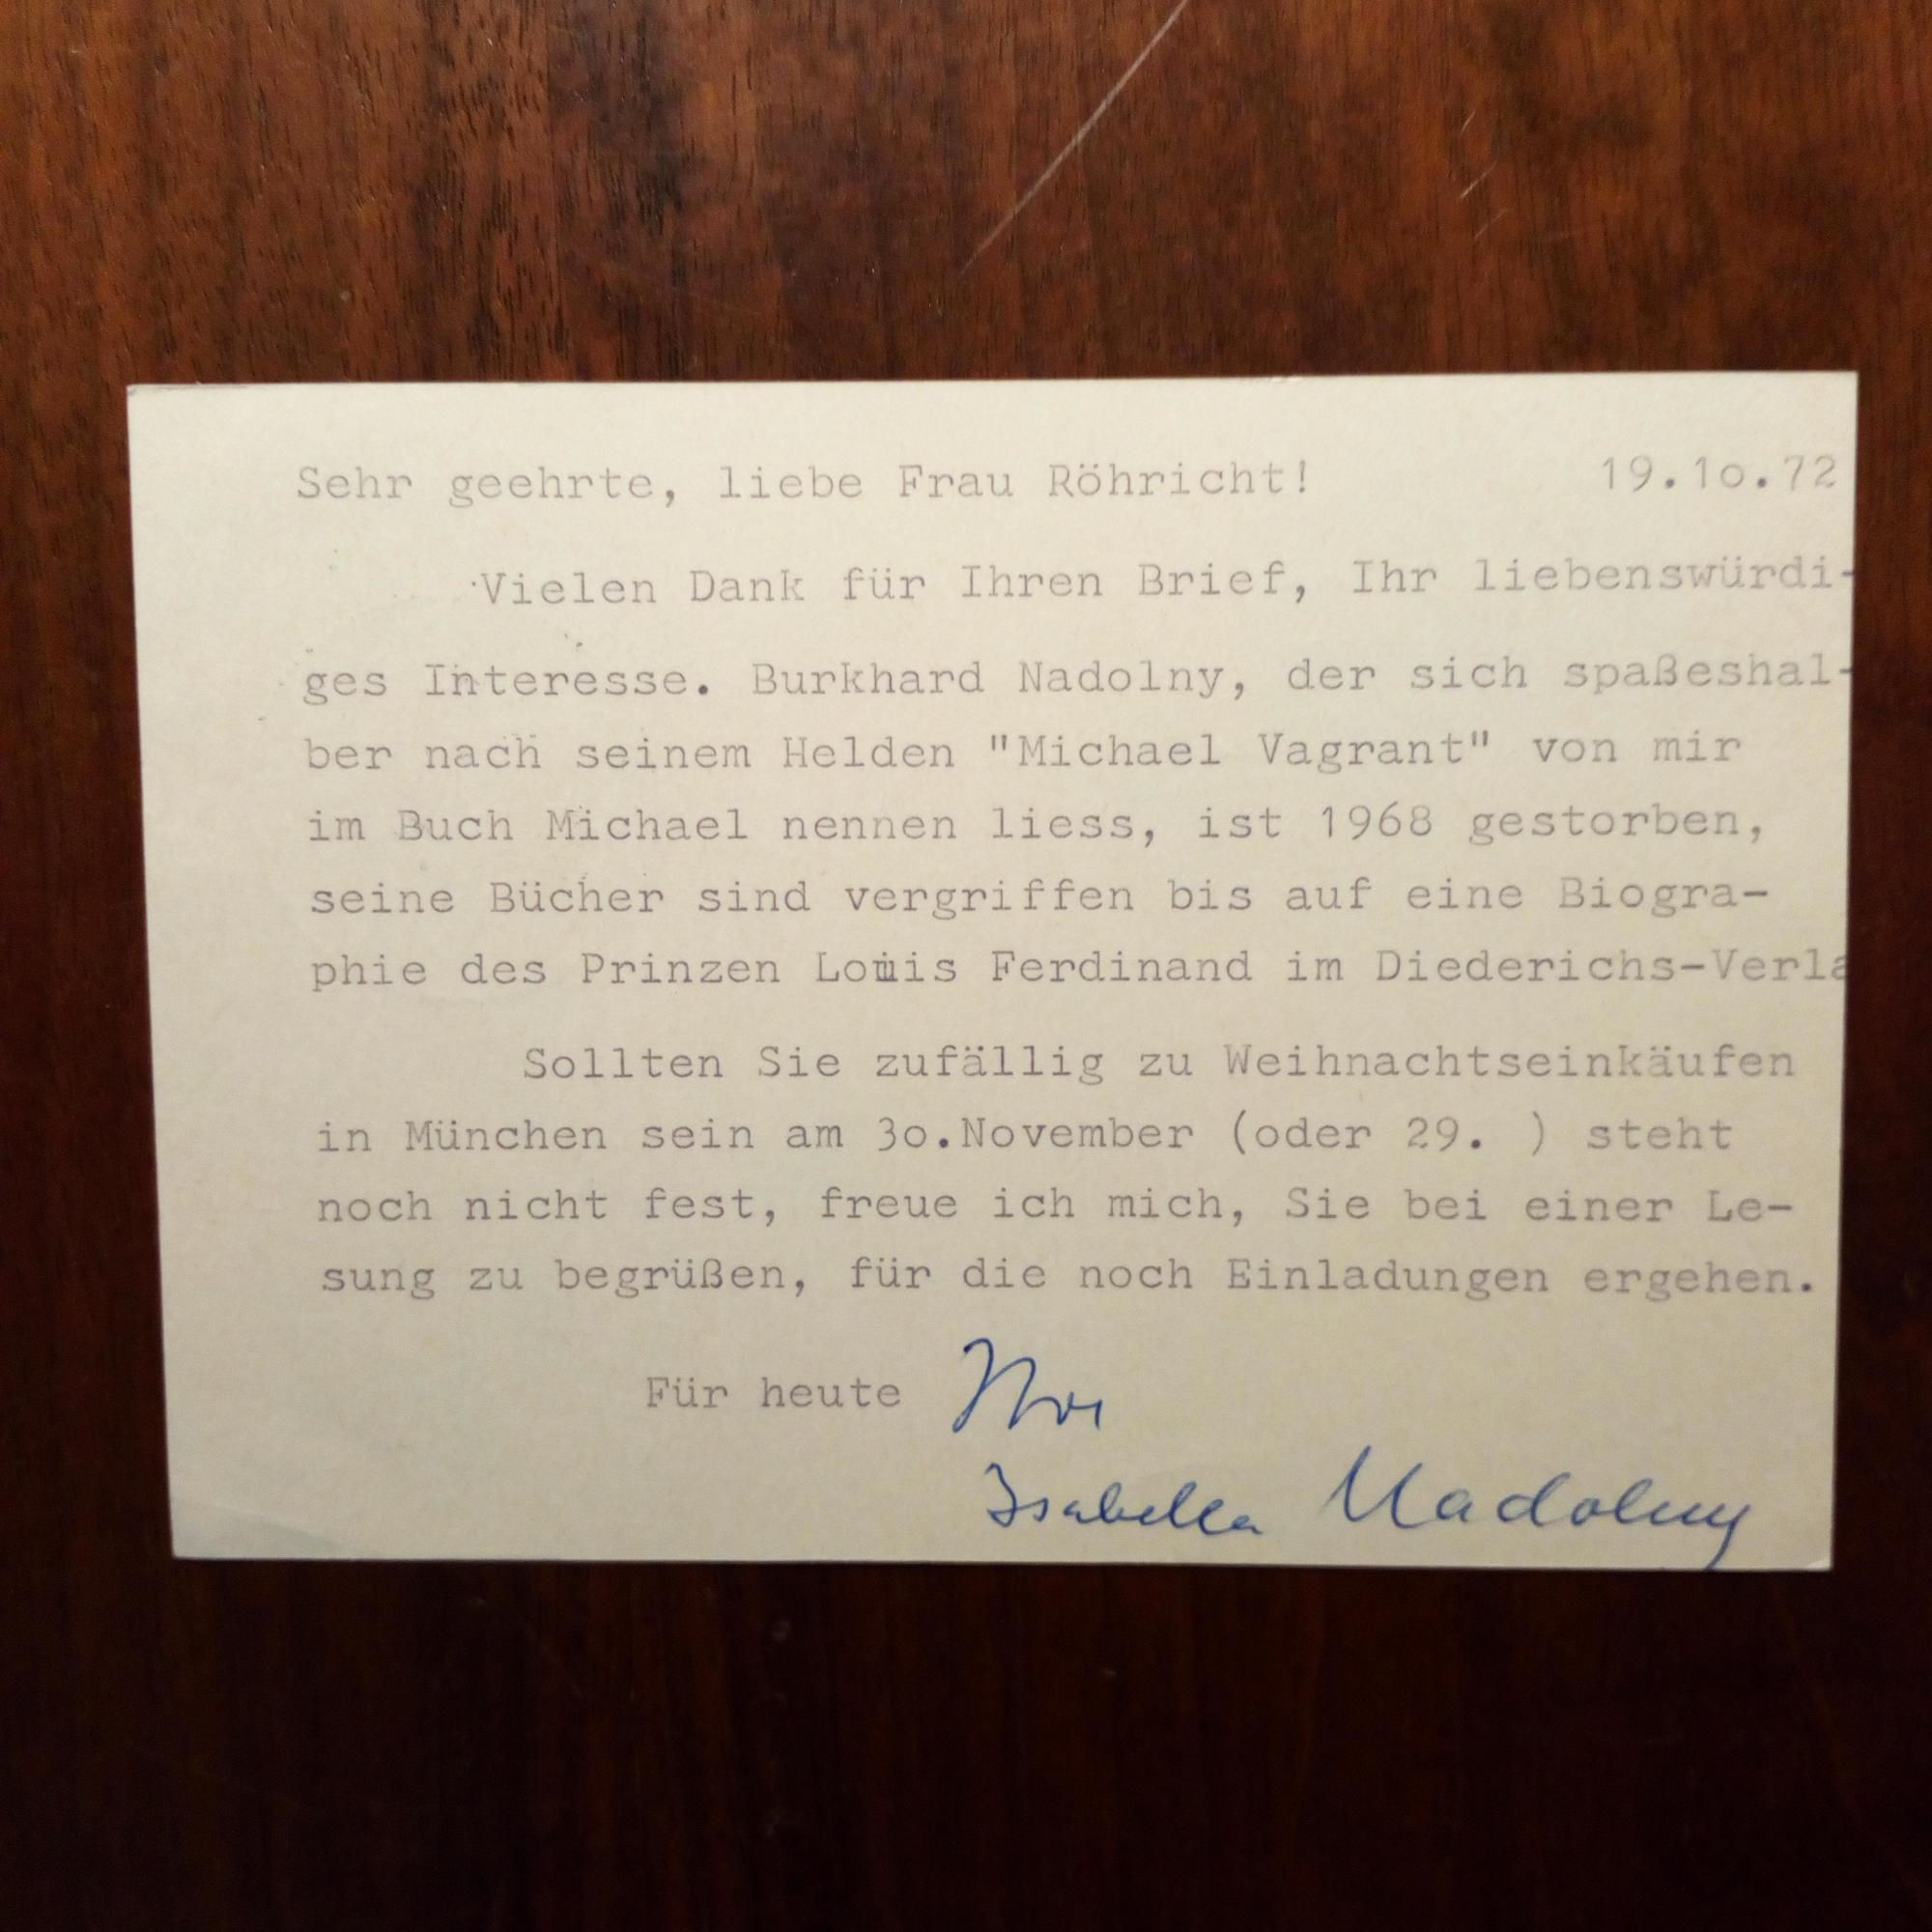 Sehr geehrte, liebe Frau Röhricht! 19.1o.72
Vielen Dank für Ihren Brief, Ihr liebenswürdi-
ges Interesse. Burkhard Nadolny, der sich spaßeshal-
ber nach seinem Helden "Michael Vagrant" von mir
im Buch Michael nennen liess, ist 1968 gestorben,
seine Bücher sind vergriffen bis auf eine Biogra-
phie des Prinzen Louis Ferdinand im Diederichs-Verla
Sollten Sie zufällig zu Weihnachtseinkäufen
in München sein am 3o.November (oder 29. ) steht
noch nicht fest, freue ich mich, Sie bei einer Le-
sung zu begrüßen, für die noch Einladungen ergehen.
Für heute Ihre
Isabella Nadolny